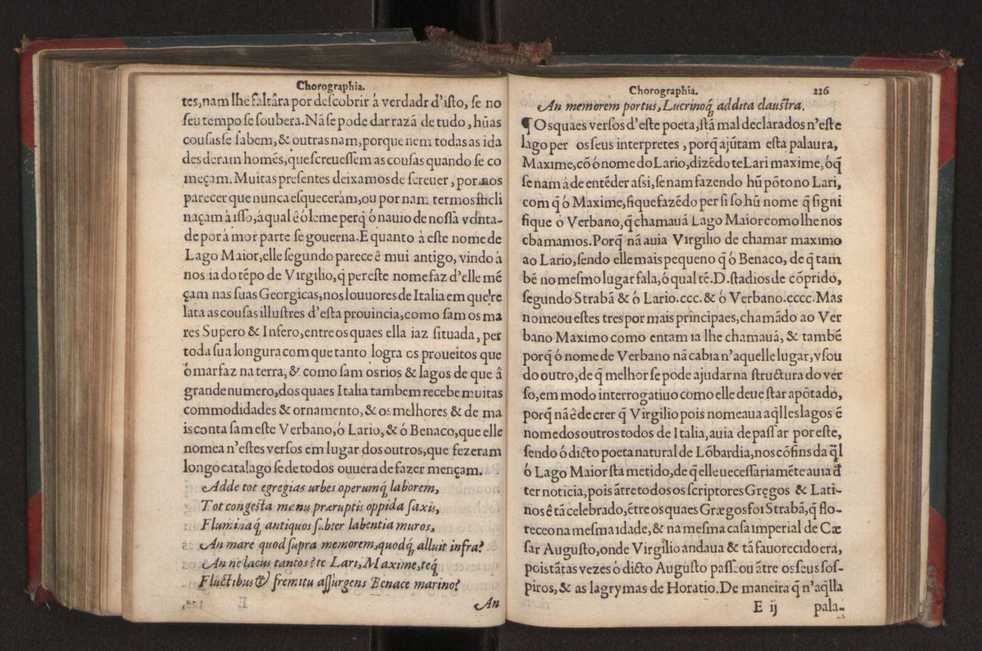 Chorographia.
tes, nam lhe faltâra por descobrir á verdadr d'isto, se no
seu tempo se soubera. Nã se pode dar razã de tudo, hũas
cousas se sabem, & outras nam, porque nem todas as ida
des deram homẽs, que screuessem as cousas quando se co
meçam. Muitas presentes deixamos de screuer, por nos
parecer que nunca esqueceràm, ou por nam termos sticli
naçam à isso, à qual é ó leme perq̃ ó nauio de nossà vonta-
de por à mòr parte se gouerna. E quanto à este nome de
Lago Maior, elle segundo parece ẽ mui antigo, vindo à
nos ia do tẽpo de Virgilio, q̃ per este nome faz d'elle mẽ
çam nas suas Georgicas, nos louuores de Italia em que re
lata as cousas illustres d'esta prouincia, como sam os ma
res Supero & Infero, entre os quaes ella iaz situada, per
toda sua longura com que tanto logra os proueitos que
ó mar faz na terra, & como sam os rios & lagos de que â
grande numero, dos quaes Italia tambem recebe muitas
commodidades & ornamento, & os melhores & de ma
is conta sam este Verbano, ó Lario, & ó Benaco, que elle
nomea n'estes versos em lugar dos outros, que fezeram
longo catalago se de todos ouuera de fazer mençam.
Adde tot egregias urbes operumq̃ laborem,
Tot congesta manu præruptis oppida saxis,
Fluminaq̃ antiquos subter labentia muros,
An mare quod supra memorem, quodq̃ alluit infra?
An ne lacus tantos? te Lari, Maxime, teq̃
Fluctibus & fremitu assurgens Benace marino?
An
Chorographia. 226
An memorem portus, Lucrinoq̃ addita claustra.
¶ Os quaes versos d'este poeta, stã mal declarados n'este
lago per os seus interpretes, porq̃ ajũtam esta palaura,
Maxime, cõ ó nome do Lario, dizẽdo te Lari maxime, ó q̃
se nam à de entẽder assi, se nam fazendo hũ põto no Lari,
com q̃ ó Maxime, fique fazẽdo per si so hũ nome q̃ signi
fique ó Verbano, q̃ chamauã Lago Maior como lhe nos
chamamos. Porq̃ nã auia Virgilio de chamar maximo
ao Lario, sendo elle mais pequeno q̃ ó Benaco, de q̃ tam
bẽ no mesmo lugar fala, ó qual tẽ. D. stadios de cõprido,
segundo Strabã & ó Lario. ccc. & ó Verbano. cccc. Mas
nomeou estes tres por mais principaes, chamãdo ao Ver
bano Maximo como entam ia lhe chamauã, & tambẽ
porq̃ ó nome de Verbano nã cabia n'aquelle lugar, vsou
do outro, de q̃ melhor se pode ajudar na structura do ver
so, em modo interrogatiuo como elle deue star apõtado,
porq̃ nã è de crer q̃ Virgilio pois nomeaua aq̃lles lagos ẽ
nome dos outros todos de Italia, auia de passar por este,
sendo ó dicto poeta natural de Lõbardia, nos cõfins da q̃l
ó Lago Maior sta metido, de q̃ elle necessariamẽte auia d̃
ter noticia, pois ãtre todos os scriptores Gregos & Lati-
nos ẽ tã celebrado, ẽtre os quaes Græegos foi Strabã, q̃ flo-
receo na mesma idade, & na mesma casa imperial de Cæ
sar Augusto, onde Virgilio andaua & tã fauorecido era,
pois tãtas vezes ó dicto Augusto passou ãtre os seus sos-
piros, & as lagrymas de Horatio. De maneira q̃ n'aq̃lla
E ij pala-